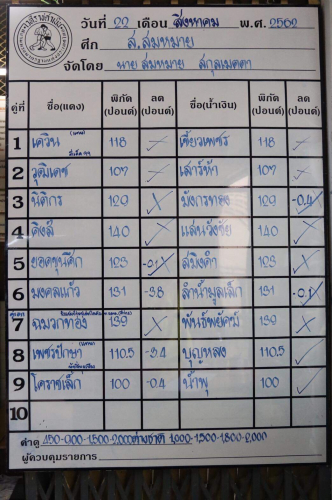 วันที่ 22 เดือน สิงหาคม พ.ศ. 2562
ศึก ส.สมหมาย
จัดโดย นาย สมหมาย สกุลเมตตา
คู่ที่ ชื่อ(แดง) พิกัด (ปอนด์) ลด (ปอนด์) ชื่อ(น้ำเงิน) พิกัด (ปอนด์) ลด (ปอนด์)
1 เควิน 118 เขี้ยวเพชร 118
2 วุฒิเดช 107 เสาร์ห้า 107
3 นิติกร 129 มังกรทอง 129 -0.4
4 คิงส์ 140 แสนวังชัย 140
5 ยอดขุนศึก 123 -0.1 สมิงดำ 123
6 มงคลแก้ว 131 -3.8 ลำน้ำมูลเล็ก 131 -0.1
7 ฉมวกทอง 139 พันธ์พยัคฆ์ 139
8 เพชรปักษา 110.5 -3.4 บุญหลง 110.5
9 โคราชเล็ก 100 -0.4 น้ำพุ 100
10
ค่าดู 450-900-1,500-2,000 ต่างชาติ 1,000-1,500-1,800-2,000
ผู้ควบคุมรายการ